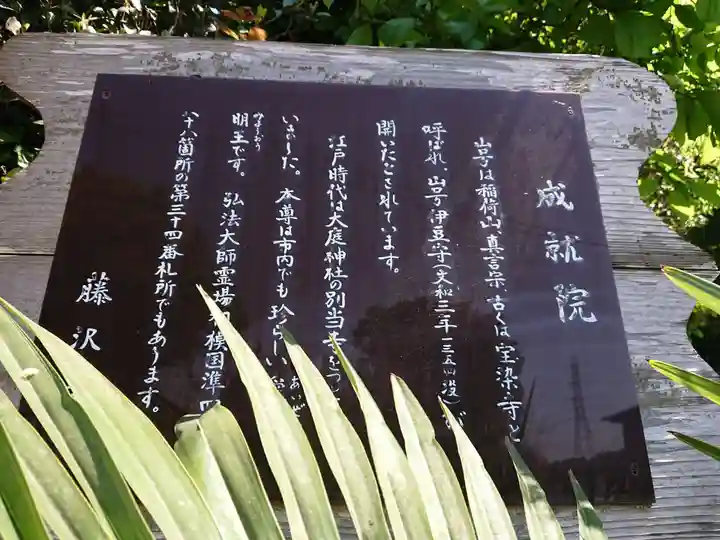 成就院
山号は稲荷山、真言宗、古くは宝染寺と
呼ばれ、山号伊豆守(文和三年一三五四没)が
開いたとされています。
江戸時代は大庭神社の別当
いました。本尊は市内でも珍らしい
明王です。弘法大師霊場相模国準四
八十八箇所の第三十四番札所でもあります。
藤沢